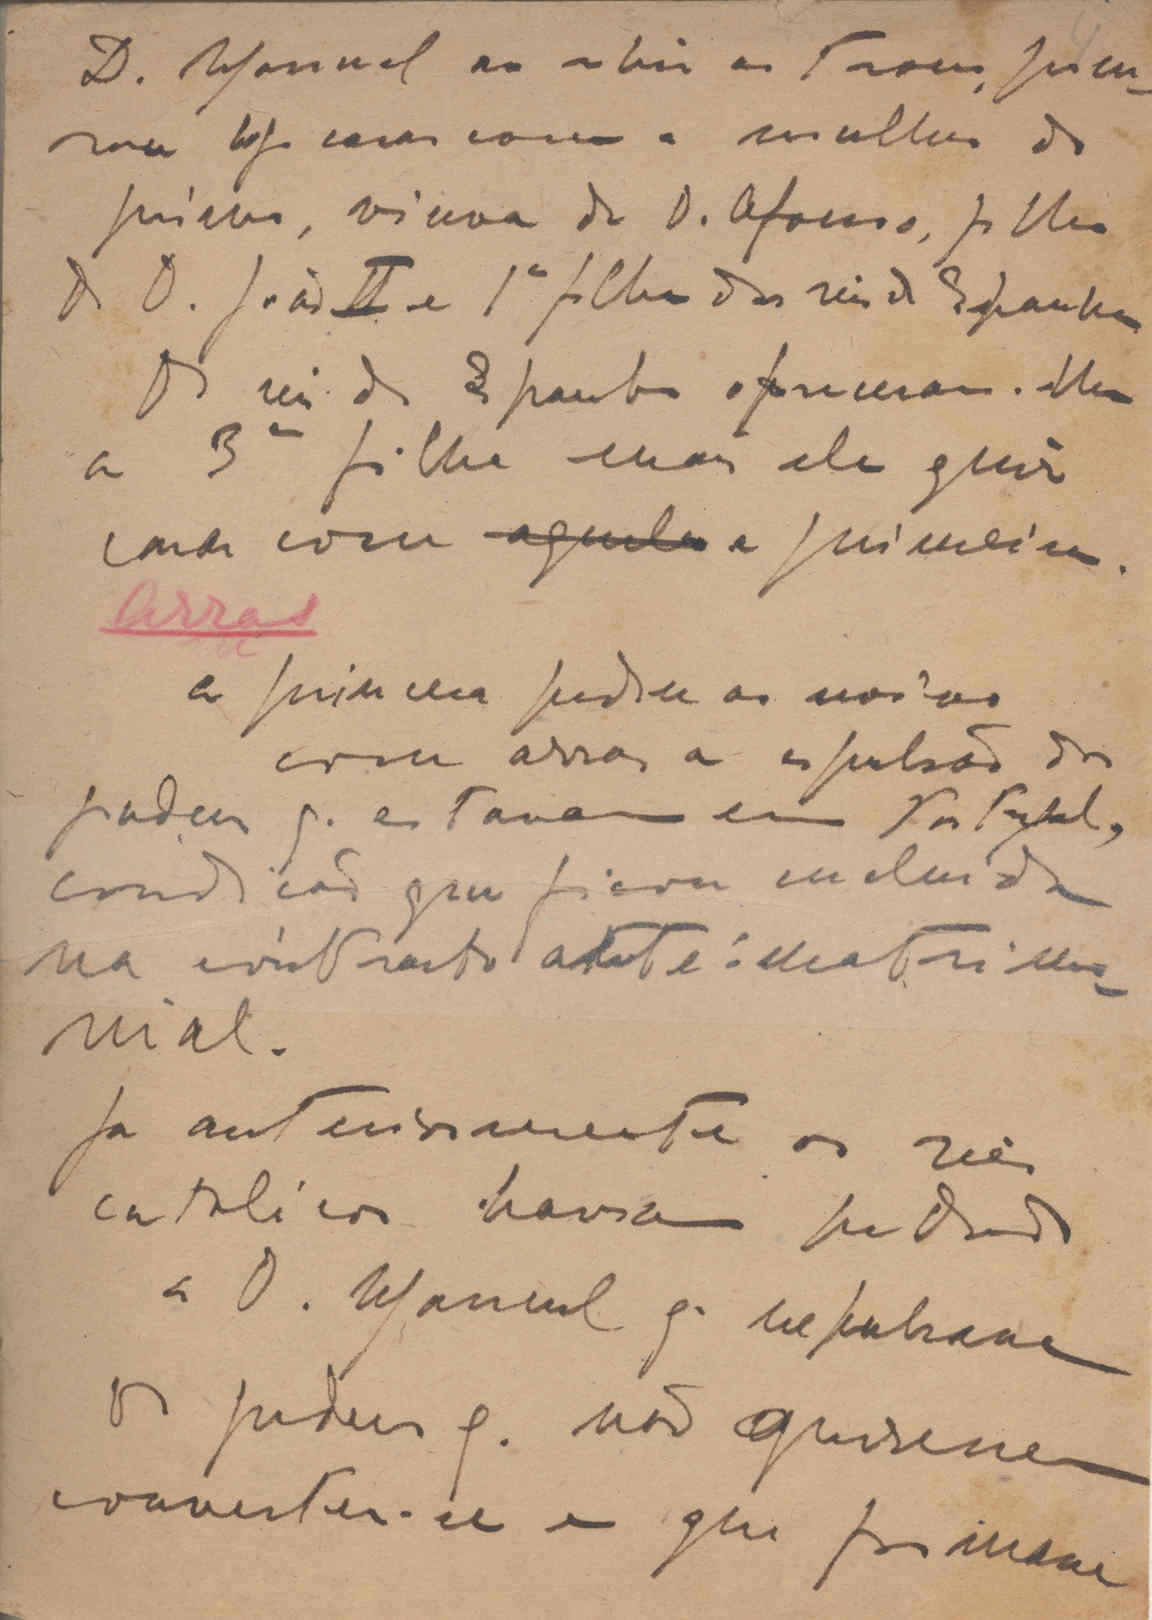 D. Manuel ao subir ao trono, procu-
rou logo casar com a mulher do
primo, viuva de D. Afonso, filho
de D. João II e 1ª filha dos reis de Espanha
Os reis de Espanha ofereceram-lhe
a 3ª filha mas ele quis
casar com aquela a primeira.
Arras
a princesa pediu ao noivo
com arras a expulsão dos
judeus q. estavam em Portugal,
condicão que ficou incluida
na contrato ante-matrimo-
nial.
Ja anteriormente os reis
catolicos haviam pedido
a D. Manuel q. expulsasse
os judeus q. não quisessem
converter-se e que